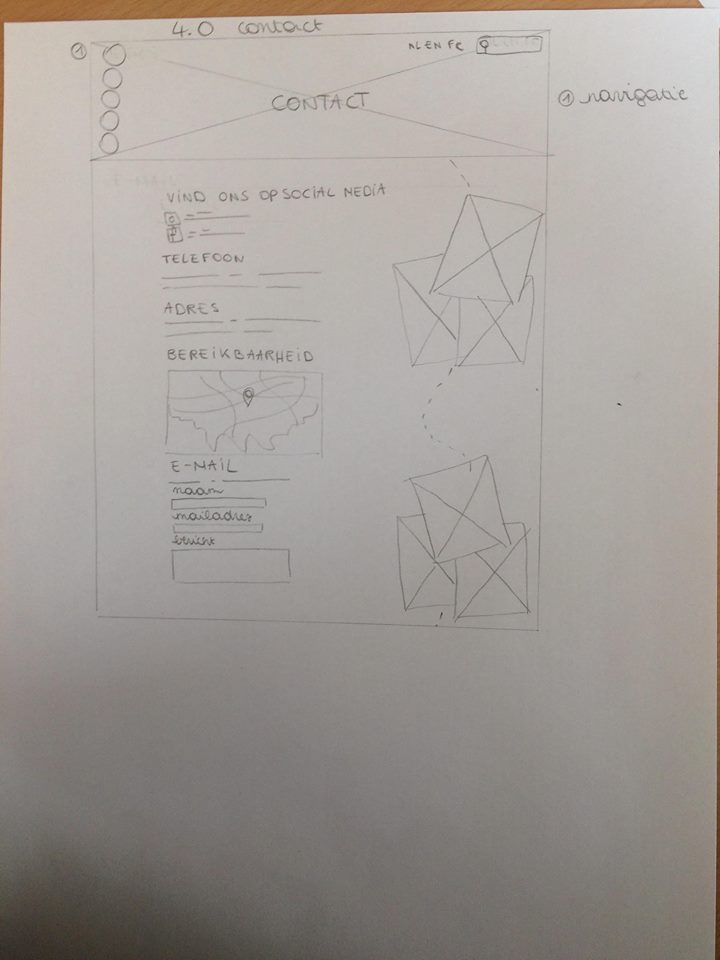 4.0 contact
①
NL EN FR
CONTACT
① navigatie
VIND ONS OP SOCIAL MEDIA
f
TELEFOON
ADRES
BEREIKBAARHEID
E-MAIL
naam
mailadres
bericht